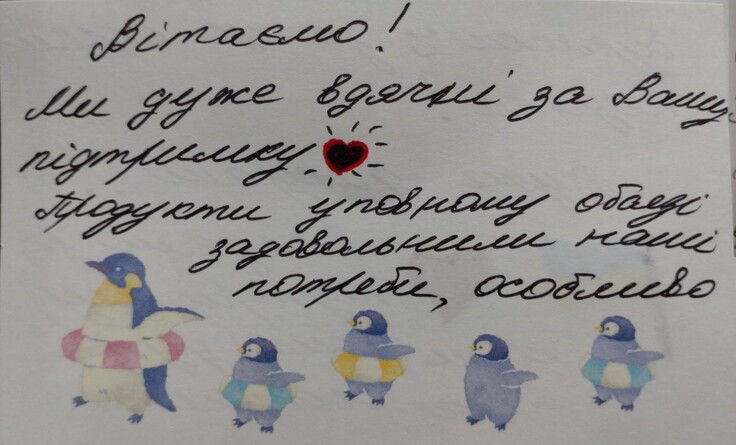 Вітаємо!
Ми дуже вдячні за Вашу
підтримку
Продукти у повному обсязі
задовольнили наші
потреби, особливо